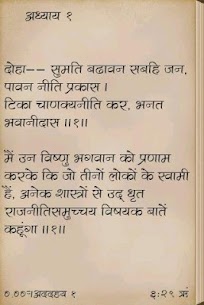 अध्याय १
दोहा-- सुमति बढावन सबहि जन,
पावन नीति प्रकास ।
टिका चाणक्यनीति कर, भनत
भवानीदास ।।१।।
मैं उन विष्णु भगवान को प्रणाम
करके कि जो तीनों लोकों के स्वामी
हैं, अनेक शास्त्रों से उद् धृत
राजनीतिसमुच्चय विषयक बातें
कहूंगा ।।१।।